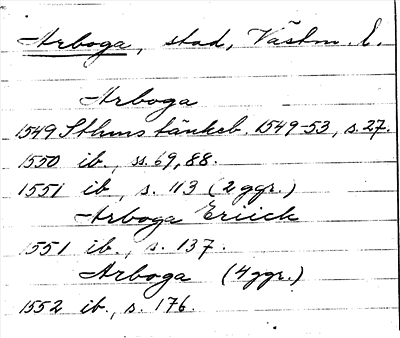 Arboga, stad, Västm. l.
Arboga
1549 Sthms tänkeb. 1549-53, s. 27.
1550 ib., ss. 69, 88.
1551 ib., s. 113 (2 ggr.)
Arboga Eriick
1551 ib., s. 137.
Arboga (4 ggr.)
1552 ib., s. 176.